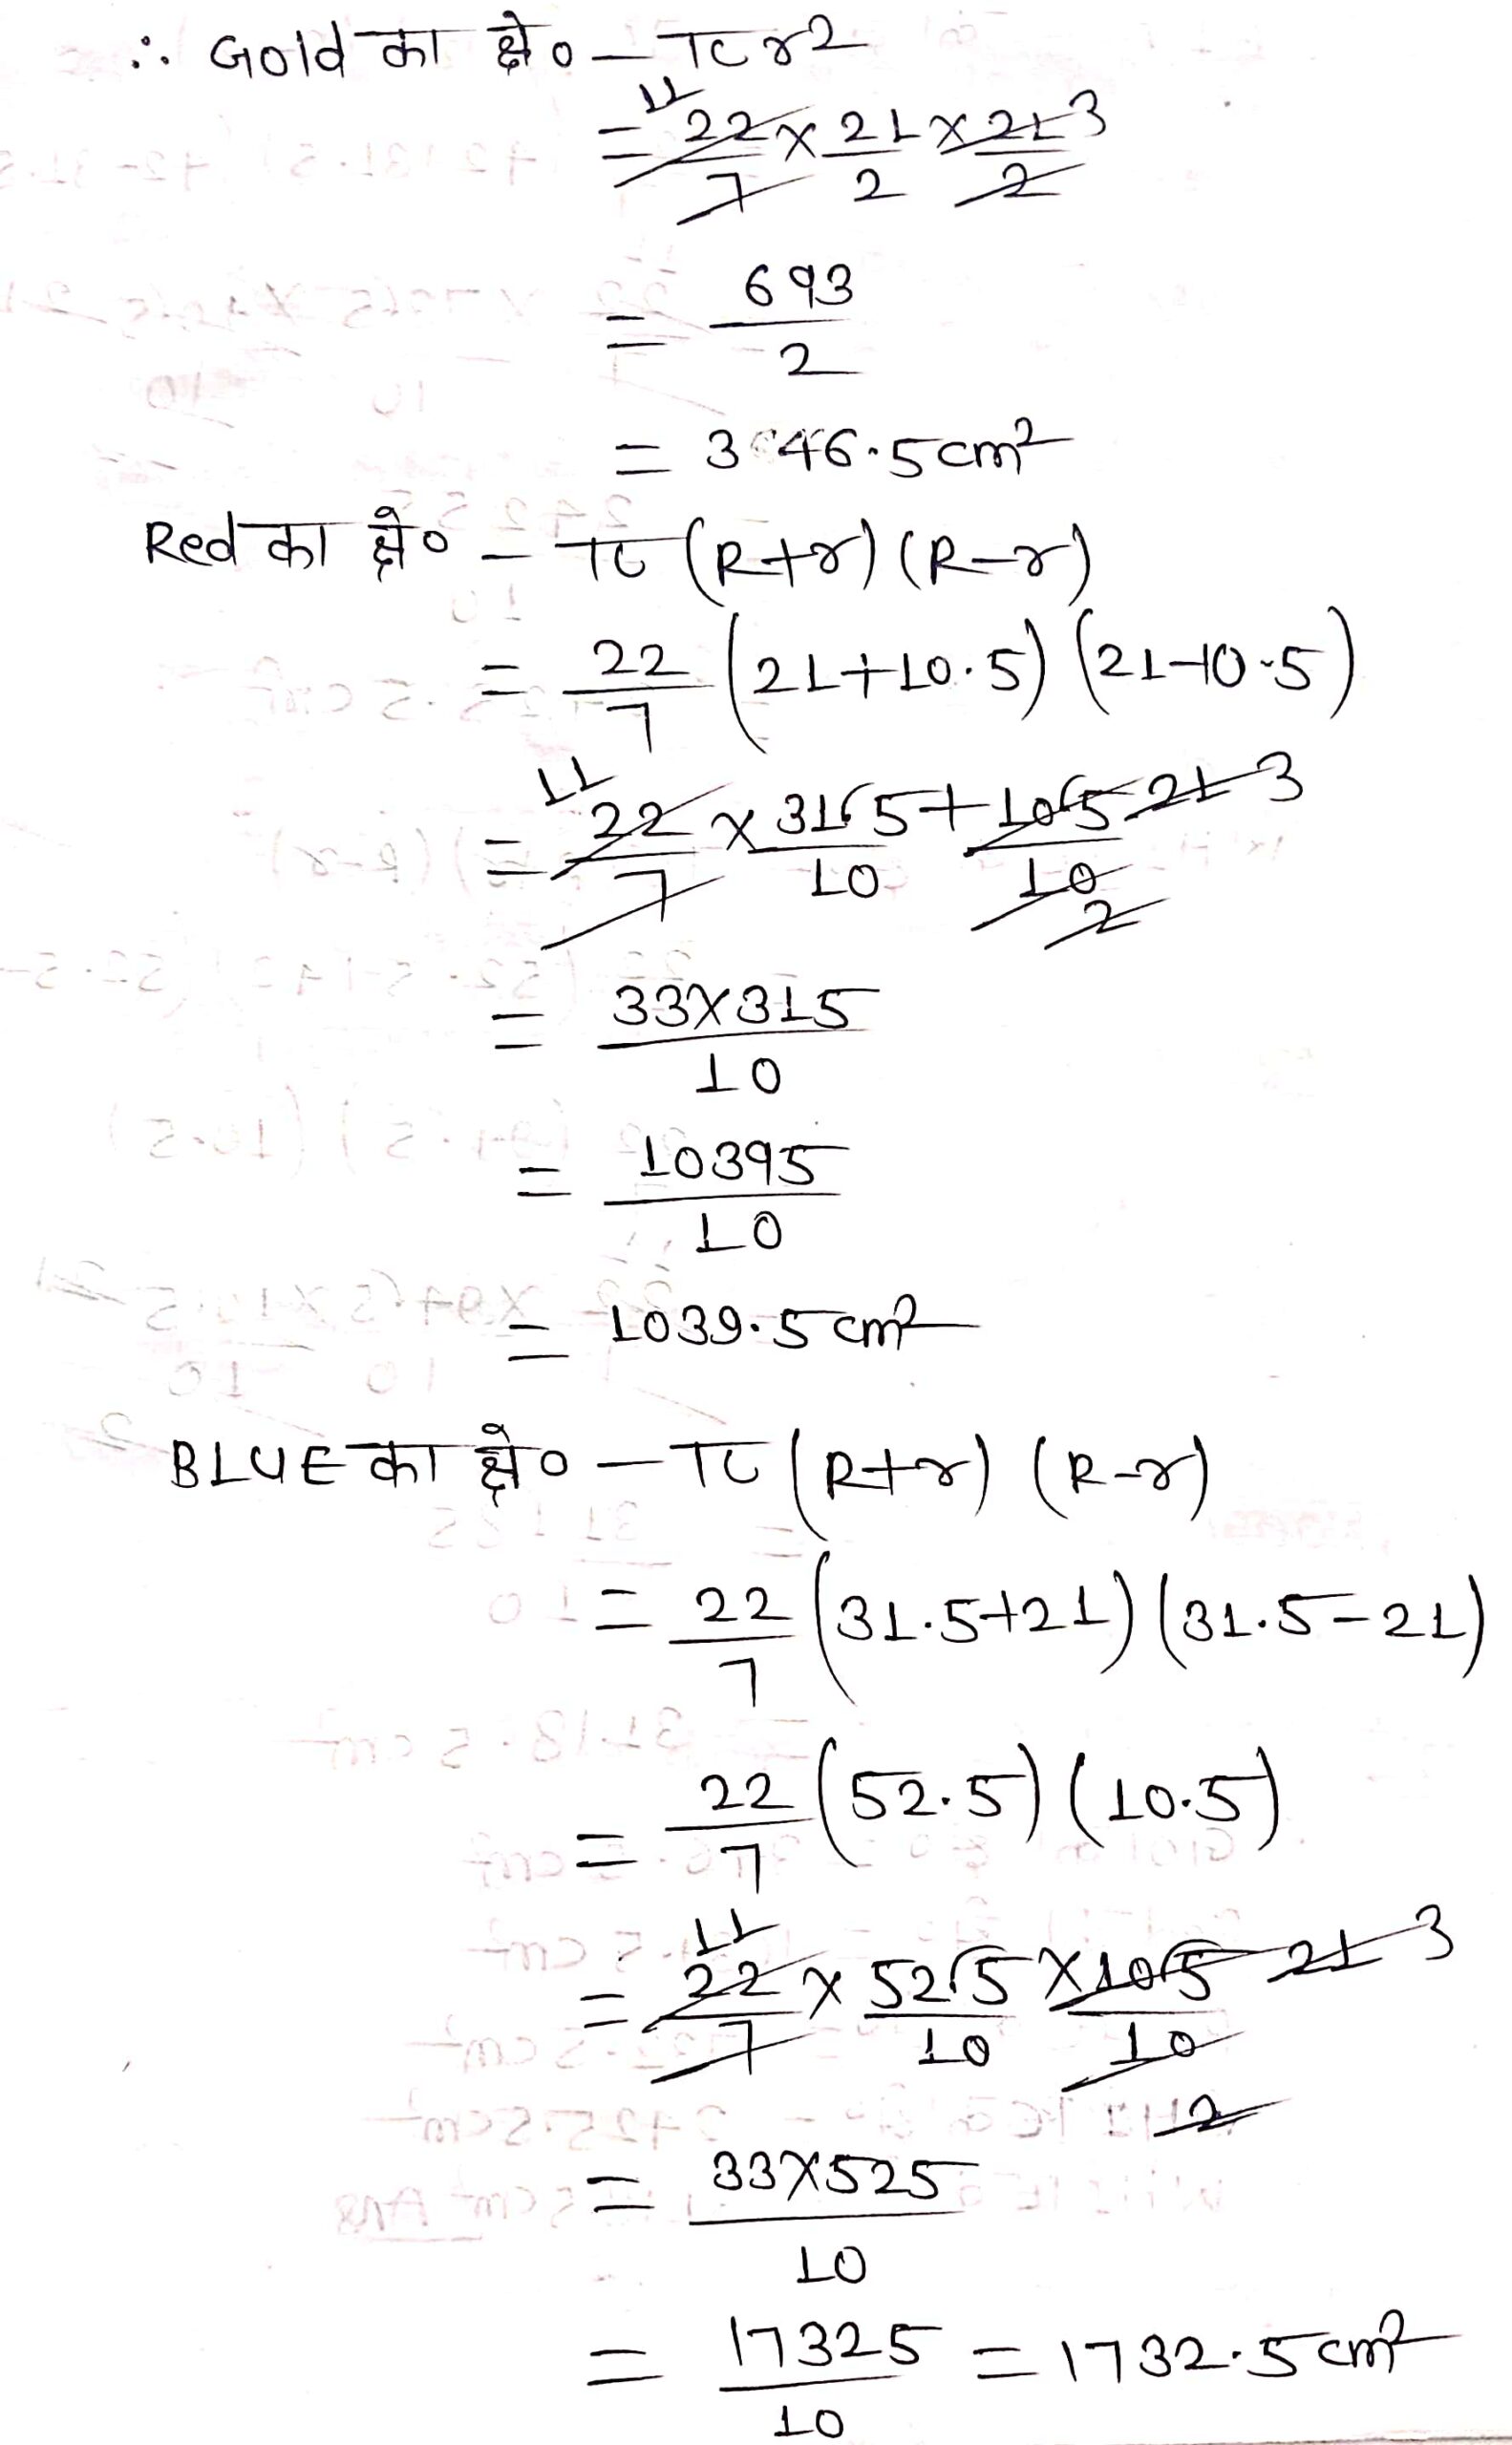 ∴ Gold का क्षे० – πr2
= 22/7 × 21/2 × 21/2 11 3
= 693/2
= 346.5 cm²
Red का क्षे० – π (R+r) (R-r)
= 22/7 (21+10.5) (21-10.5)
= 22/7 × 315/10 + 105/10 11 21 3 2
= 33×315/10
= 10395/10
= 1039.5 cm²
BLUE का क्षे० – π (R+r) (R-r)
= 22/7 (31.5+21) (31.5-21)
= 22/7 (52.5) (10.5)
= 22/7 × 525/10 × 105/10 11 21 3 2
= 33×525/10
= 17325/10 = 1732.5 cm²